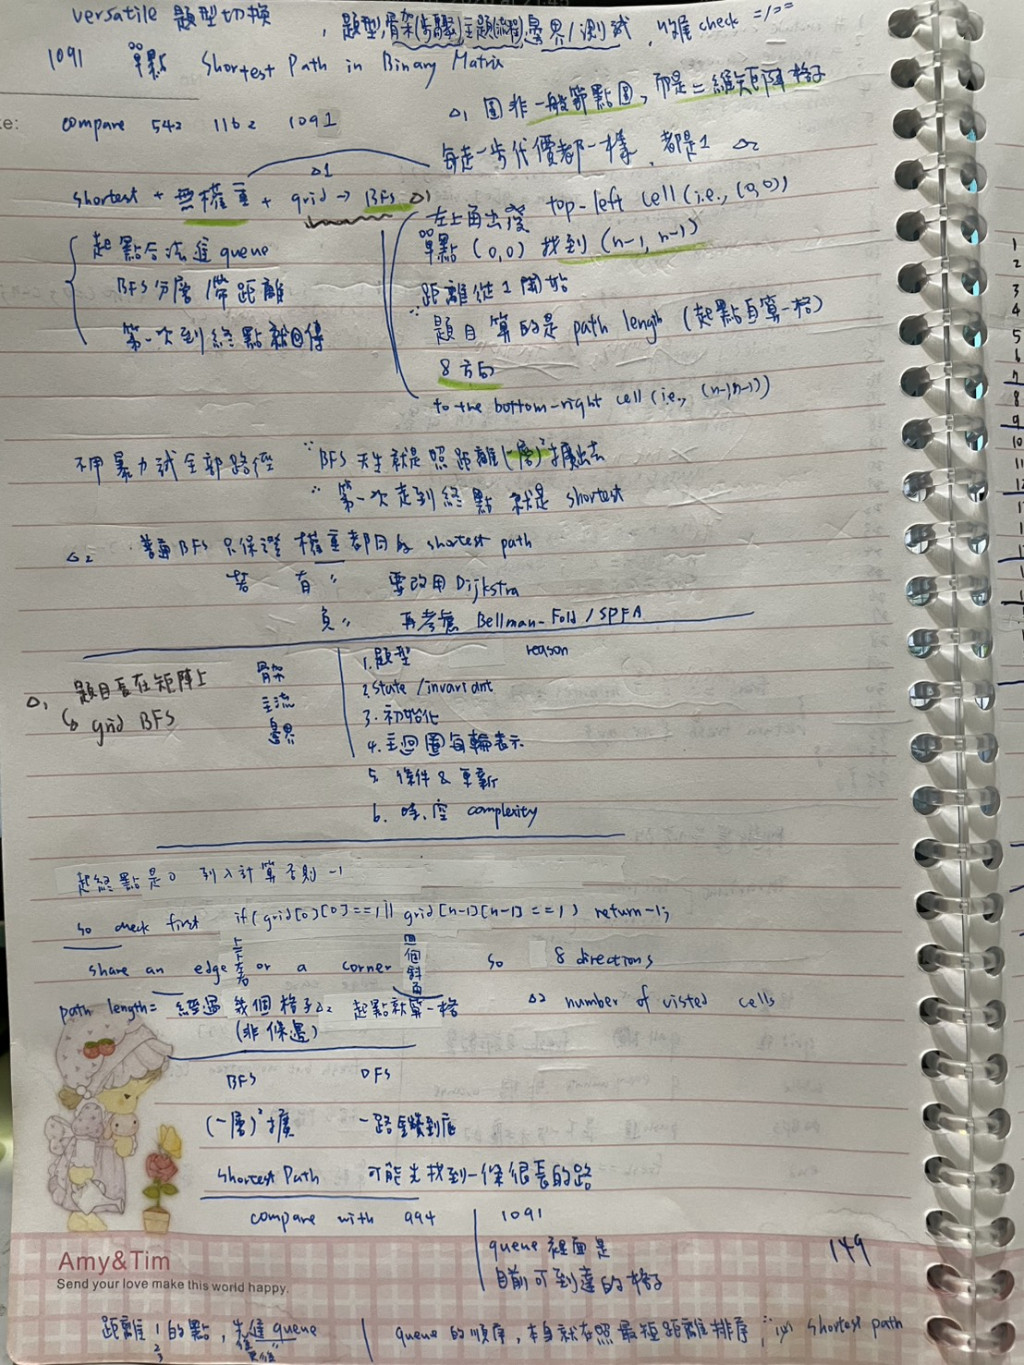 versatile 題型切換 , 題型,骨架(步驟)主題(流程)邊界/測試,
1091 單點 Shortest Path in Binary Matrix
△1 圖非一般節點圖,而是二維矩陣格子
compare 542 1162 1091
每走一步代價都一樣,都是1 △2
△1
shortest + 無權重 + grid → BFS △1
左上角出發 top-left cell (i.e., (0,0))
單點 (0,0) 找到 (n-1, n-1)
起點合法進 queue
BFS分層/帶距離
第一次到終點就回傳
距離從1開始
∵題目算的是 path length (起點自算一格)
8方向
to the bottom-right cell (i.e., (n-1,n-1))
不用暴力試全部路徑 ∵BFS天生就是照距離(一層)²擴出去
∵第一次走到終點 就是 shortest
△2 普通BFS只保證 權重都同的 shortest path
若 有〃 要改用 Dijkstra
負〃 再考慮 Bellman-Fold / SPFA
△1 題目長在矩陣上
↳ grid BFS
骨架
主流
邊界
1.題型 reason
2.State / invariant
3.初始化
4.主迴圈每輪表示
5.條件&更新
6.時.空 complexity
起終點是0 列入計算否則 -1
so check first if(grid[0][0]==1 || grid[n-1][n-1]==1) return -1;
share an edge 上下左右 or a corner 四個斜角 so 8 directions
path length = 經過幾個格子△2 起點就算一格 △2 number of visted cells
(非條邊)
BFS DFS
(一層)²擴 一路鑽到底
Shortest Path 可能先找到一條很長的路
compare with 994 1091
queue 裡面是
目前可到達的格子
149
Amy&Tim
Send your love make this world happy.
距離 1 2 3 的點, 先進 queue
queue 的順序,本身就在照最短距離排序 shortest path